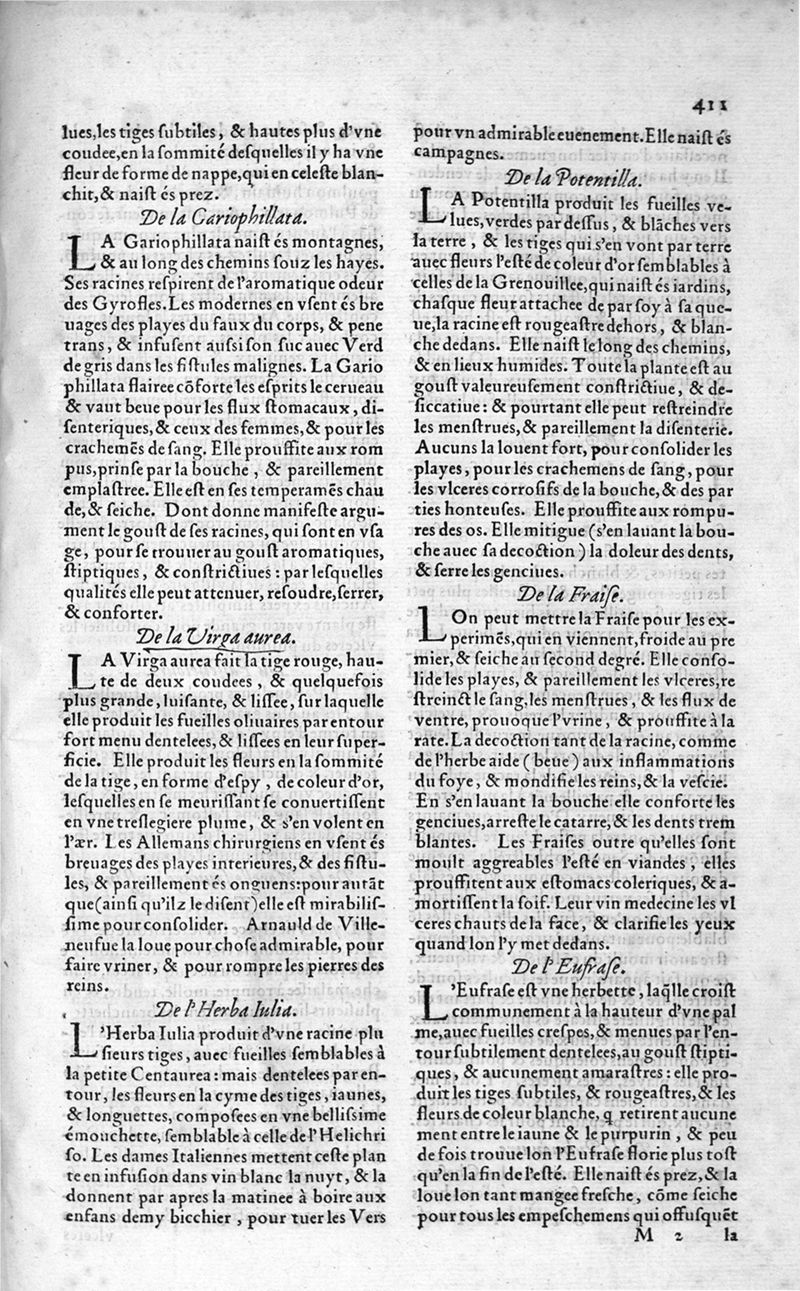 411
lues,les tiges ſubtiles, & hautes plus d'vne
coudee,en la ſommité deſquelles il y ha vne
fleur de forme de nappe,qui en celeſte blan-
chit,& naiſt és prez.
De la Gariophillata.
LA Gariophillata naiſt és montagnes,
& au long des chemins ſouz les hayes.
Ses racines reſpirent de l'aromatique odeur
des Gyrofles.Les modernes en vſent és bre
uages des playes du faux du corps, & pene
trans, & infuſent auſsi ſon ſuc auec Verd
de gris dans les fiſtules malignes. La Gario
phillata flairee cōforte les eſprits le cerueau
& vaut beue pour les flux ſtomacaux, di-
ſenteriques,& ceux des femmes,& pour les
crachemēs de ſang. Elle prouffite aux rom
pus,prinſe par la bouche, & pareillement
emplaſtree. Elle eſt en ſes temperamēs chau
de,& ſeiche. Dont donne manifeſte argu-
ment le gouſt de ſes racines, qui ſont en vſa
ge, pour ſe trouuer au gouſt aromatiques,
ſtiptiques, & conſtrictiues : par leſquelles
qualités elle peut attenuer, reſoudre,ſerrer,
& conforter.
De la Virga aurea.
LA Virga aurea fait la tige rouge, hau-
te de deux coudees, & quelquefois
plus grande, luiſante, & liſſee, ſur laquelle
elle produit les fueilles oliuaires par entour
fort menu dentelees,& liſſees en leur ſuper-
ficie. Elle produit les fleurs en la ſommité
de la tige, en forme d'eſpy, de couleur d'or,
leſquelles en ſe meuriſſant ſe conuertiſſent
en vne treſlegiere plume, & s'en volent en
l'ær. Les Allemans chirurgiens en vſent és
breuages des playes interieures,& des fiſtu-
les, & pareillement és onguens:pour autāt
que(ainſi qu'ilz le diſent)elle eſt mirabiliſ-
ſime pour conſolider. Arnauld de Ville-
neufue la loue pour choſe admirable, pour
faire vriner, & pour rompre les pierres des
reins.
De l'Herba Iulia.
L'Herba Iulia produit d'vne racine plu
ſieurs tiges, auec fueilles ſemblables à
la petite Centaurea : mais dentelees par en-
tour, les fleurs en la cyme des tiges, iaunes,
& longuettes, compoſees en vne belliſsime
émouchette, ſemblable à celle de l'Helichri
ſo. Les dames Italiennes mettent ceſte plan
te en infuſion dans vin blanc la nuyt, & la
donnent par apres la matinee à boire aux
enfans demy bicchier, pour tuer les Vers
pour vn admirable euenement.Elle naiſt és
campagnes.
De la Potentilla.
LA Potentilla produit les fueilles ve-
lues,verdes par deſſus, & blāches vers
la terre, & les tiges qui s'en vont par terre
auec fleurs l'eſté de coleur d'or ſemblables à
celles de la Grenouillee,qui naiſt és iardins,
chaſque fleur attachee de par ſoy à ſa que-
ue,la racine eſt rougeaſtre dehors, & blan-
che dedans. Elle naiſt le long des chemins,
& en lieux humides. Toute la plante eſt au
gouſt valeureuſement conſtrictiue, & de-
ſiccatiue : & pourtant elle peut reſtreindre
les menſtrues,& pareillement la diſenterie.
Aucuns la louent fort, pour conſolider les
playes, pour les crachemens de ſang, pour
les vlceres corroſifs de la bouche,& des par
ties honteuſes. Elle prouffite aux rompu-
res des os. Elle mitigue (s'en lauant la bou-
che auec ſa decoction) la doleur des dents,
& ſerre les genciues.
De la Fraiſe.
LOn peut mettre la Fraiſe pour les ex-
perimēs,qui en viennent,froide au pre
mier,& ſeiche au ſecond degré. Elle conſo-
lide les playes, & pareillement les vlceres,re
ſtreinct le ſang,les menſtrues, & les flux de
ventre, prouoque l'vrine, & prouffite à la
rate.La decoction tant de la racine, comme
de l'herbe aide (beue) aux inflammations
du foye, & mondifie les reins,& la veſcie.
En s'en lauant la bouche elle conforte les
genciues,arreſte le catarre,& les dents trem
blantes. Les Fraiſes outre qu'elles ſont
moult aggreables l'eſté en viandes, elles
prouffitent aux eſtomacs coleriques, & a-
mortiſſent la ſoif. Leur vin medecine les vl
ceres chauts de la face, & clarifie les yeux
quand lon l'y met dedans.
De l'Eufraſe.
L'Eufraſe eſt vne herbette, laq̄lle croiſt
communement à la hauteur d'vne pal
me,auec fueilles creſpes,& menues par l'en-
tour ſubtilement dentelees,au gouſt ſtipti-
ques, & aucunement amaraſtres : elle pro-
duit les tiges ſubtiles, & rougeaſtres,& les
fleurs de couleur blanche, q retirent aucune
ment entre le iaune & le purpurin, & peu
de fois trouue lon l'Eufraſe florie plus toſt
qu'en la fin de l'eſté. Elle naiſt és prez,& la
loue lon tant mangee freſche, cōme ſeiche
pour tous les empeſchemens qui offuſquēt
M 2 la